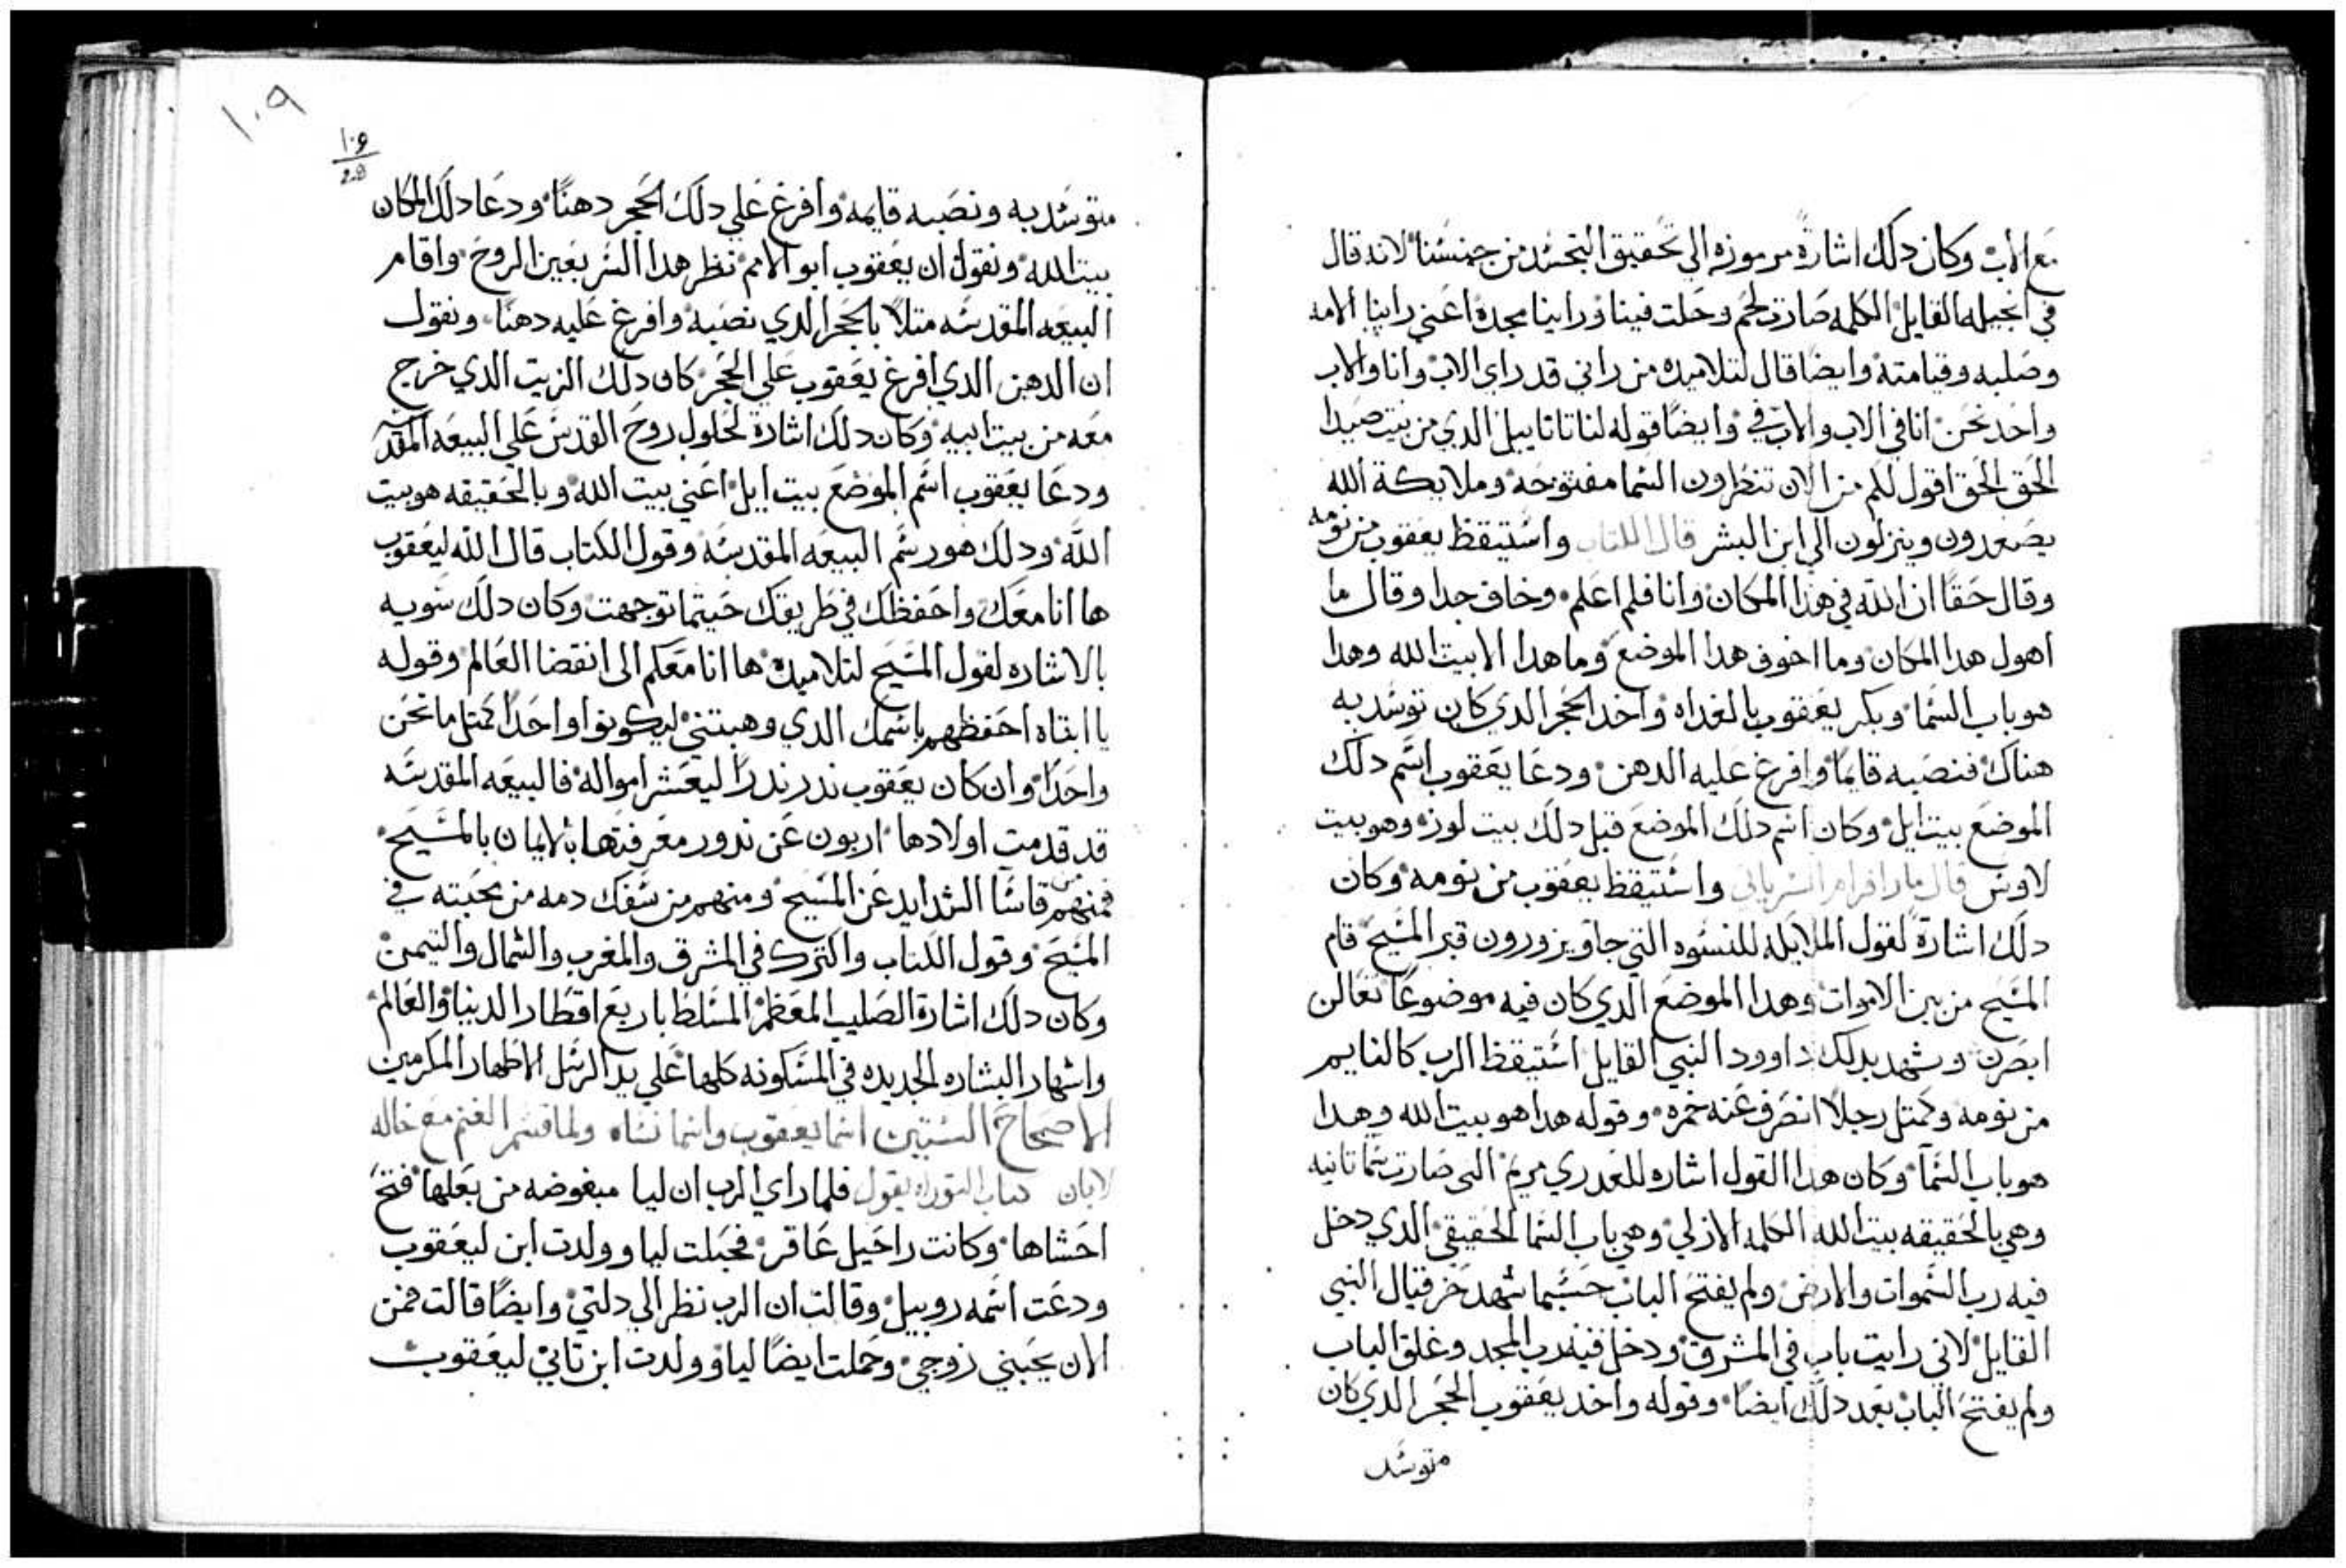 مع الاب وكان دلك اشارة مرموزه الي تحقيق التجسد من جنسنا لانه قال
في انجيله القايل الكلمه صارت لحم وحلت فينا وراينا مجده اعني راينا الامه
وصلبه وقيامته وايضا قال لتلاميده من راني قد راي الاب وانا والاب
واحد نحن انا في الاب والاب في وايضا قوله لناتانا ييل الدي من بيت صيدا
الحق الحق اقول لكم من الان تنظرون السما مفتوحه وملايكة الله
يصعدون وينزلون الي ابن البشر قال الكتاب واستيقظ يعقوب من نومه
وقال حقا ان الله في هدا المكان وانا فلم اعلم وخاف جدا وقال ما
اهول هدا المكان وما اخوف هدا الموضع وما هدا الا بيت الله وهدا
هو باب السما وبكر يعقوب بالغداه واخد الحجر الدي كان توسد به
هناك فنصبه قايما وافرغ عليه الدهن ودعا يعقوب اسم دلك
الموضع بيت ايل وكان اسم دلك الموضع قبل دلك بيت لوزه وهو بيت
لاوس قال مار افرام السرياني واستيقظ يعقوب من نومه وكان
دلك اشارة لقول الملايكه للنسوه التي جاو يزورون قبر المسيح قام
المسيح من بين الاموات وهدا الموضع الدي كان فيه موضوعا تعالن
ابصرن وشهد بدلك داوود النبي القايل استيقظ الرب كالنايم
من نومه وكمتل رجلا انصرف عنه خمره وقوله هدا هو بيت الله وهدا
هو باب السما وكان هدا القول اشاره للعدري مريم التي صارت سما تانيه
وهي بالحقيقه بيت الله الكلمه الازلي وهي باب السما الحقيقي الدي دخل
فيه رب السموات والارض ولم يفتح الباب حسبما شهد حزقيال النبي
القايل لاني رايت باب في المشرق ودخل فيه رب المجد وغلق الباب
ولم يفتح الباب بعد دلك ايضا وقوله واخد يعقوب الحجر الدي كان
متوسد
١٠٩
١٠٩
متوسد به ونصبه قايمه وافرغ علي دلك الحجر دهنا ودعا دلك المكان
بيت الله ونقول ان يعقوب ابو الامم نظر هدا السر بعين الروح واقام
البيعه المقدسه متلا بالحجر الدي نصبه وافرغ عليه دهنا ونقول
ان الدهن الدي افرغ يعقوب علي الحجر كان دلك الزيت الدي خرج
معه من بيت ابيه وكان دلك اشارة لحلول روح القدس علي البيعه المقدسه
ودعا يعقوب اسم الموضع بيت ايل اعني بيت الله وبالحقيقه هو بيت
الله ودلك هو رسم البيعه المقدسه وقول الكتاب قال الله ليعقوب
ها انا معك واحفظك في طريقك حيتما توجهت وكان دلك سويه
بالاشاره لقول المسيح لتلاميده ها انا معكم الي انقضا العالم وقوله
يا ابتاه احفظهم باسمك الدي وهبتني ليكونوا واحدا كمتل ما نحن
واحدا وان كان يعقوب ندر ندرا ليعشر امواله فالبيعه المقدسه
قد قدمت اولادها اربون عن ندور معرفتها بالايمان بالمسيح
فمنهم من قاسا الشدايد عن المسيح ومنهم من سفك دمه من محبته في
المسيح وقول الكتاب واكترك في المشرق والمغرب والشمال والتيمن
وكان دلك اشارة الصليب المعظم المسلط باربع اقطار الدنيا والعالم
واشهار البشاره الجديده في المسكونه كلها علي يد الرسل الاطهار المكرمين
الاصحاح الستين اسما يعقوب واسما نساه ولما قسم الغنم مع خاله
لابان كتاب التوراه يقول فلما راي الرب ان ليا مبغوضه من بعلها فتح
احشاها وكانت راحيل عاقر فحبلت ليا وولدت ابن ليعقوب
ودعت اسمه روبيل وقالت ان الرب نظر الي دلتي وايضا قالت فمن
الان يحبني زوجي وحملت ايضا ليا وولدت ابن تاني ليعقوب